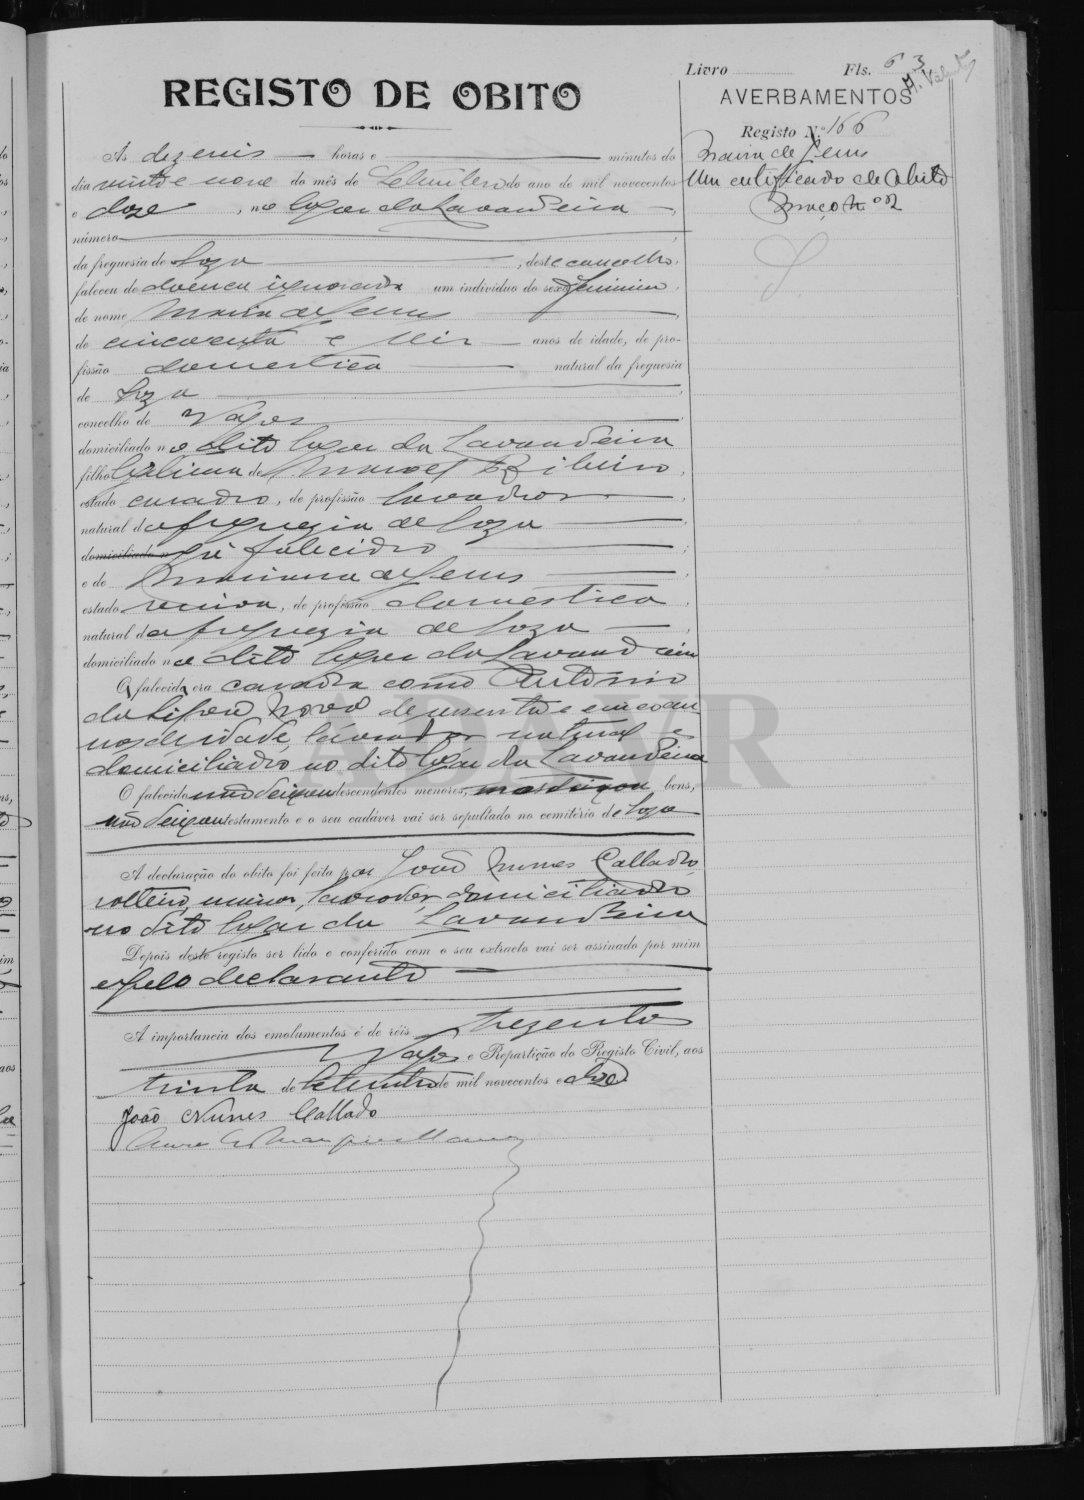 Livro Fls. 63
REGISTO DE OBITO
AVERBAMENTOS
Registo N.º 166
Maria de Jesus
Um certificado de obito
Maço nº 2
Ás dezenis horas e minutos do
dia vinte e nove do mês de Setembro do ano de mil novecentos
e doze, no logar da Lavandeira
número
da freguesia de Soza, deste concelho,
faleceu de doença ignorada um individuo do sexo feminino
de nome Maria de Jesus
de cincoenta e seis anos de idade, de pro-
fissão domestica natural da freguesia
de Soza
concelho de Vagos
domiciliado no dito logar da Lavandeira
filho legitima de Manoel Ribeiro,
estado casado, de profissão lavrador
natural da freguezia de Soza
domiciliado n já falecido
e de Marianna de Jesus
estado viuva, de profissão domestica,
natural da freguezia de Soza
domiciliado no dito logar da Lavandeira
A falecida era casada com Antonio
da Novo de sessenta e cinco an-
nos de idade, lavrador natural e
domiciliado no dito logar da Lavandeira
O falecido não deixou descendentes menores, mas deixou bens,
não deixou testamento e o seu cadáver vai ser sepultado no cemitério de Soza
A declaração do obito foi feita por João Nunes Callado,
solteiro, menor, lavrador, domiciliado
no dito logar da Lavandeira
Depois deste registo ser lido e conferido com o seu extracto vai ser assinado por mim
e pelo declarante
A importancia dos emolumentos é de réis trezentos
Vagos e Repartição do Registo Civil, aos
trinta de Setembro de mil novecentos e doze
João Nunes Callado
ADAVR